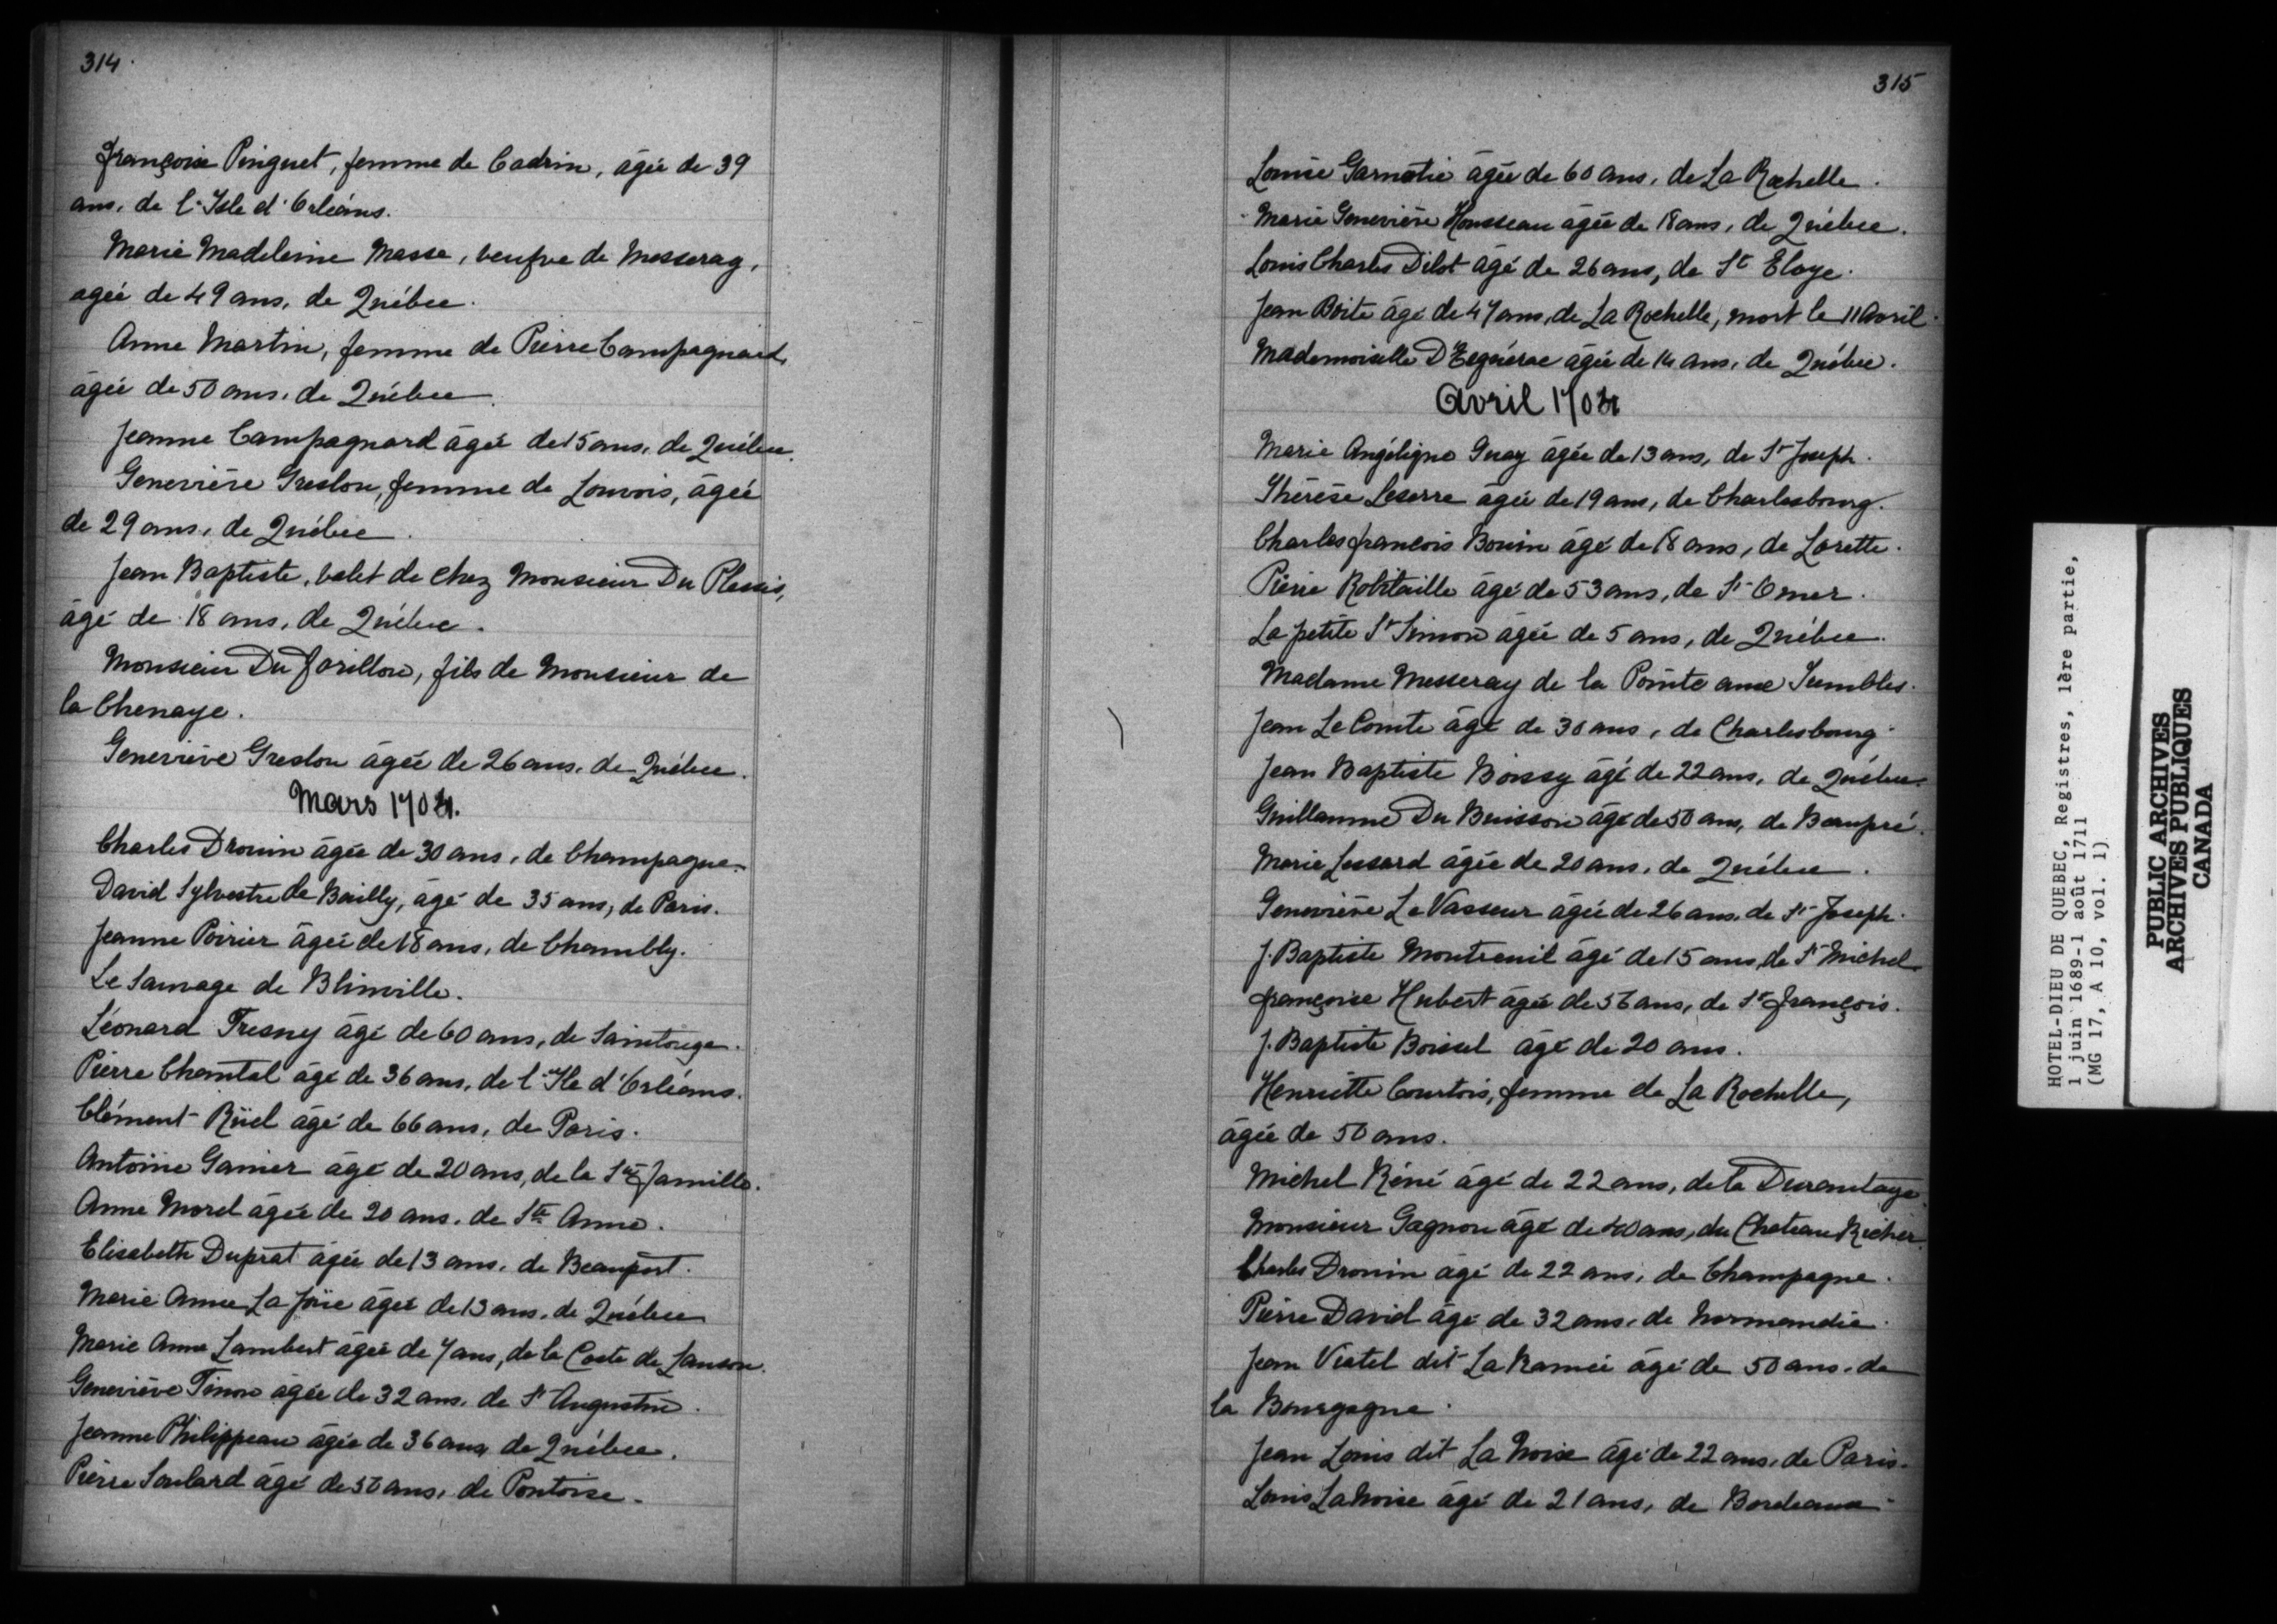 314
Françoise Pinguet, femme de Cadrin, âgée de 39
ans, de l'Isle d'Orléans.
Marie Madeleine Masse, veufve de Messeray,
agée de 49 ans, de Québec.
Anne Martin, femme de Pierre Campagnard,
âgée de 50 ans, de Québec.
Jeanne Campagnard âgée de 15 ans, de Québec.
Geneviève Greslon, femme de Louvois, âgée
de 29 ans, de Québec.
Jean Baptiste, valet de chez Monsieur Du Plessis,
âgé de 18 ans, de Québec.
Monsieur Du Forillon, fils de Monsieur de
la Chenaye.
Geneviève Greslon âgée de 26 ans, de Québec.
Mars 1704.
Charles Drouin âgée de 30 ans, de Champagne.
David Sylvestre de Bailly, âgé de 35 ans, de Paris.
Jeanne Poirier âgée de 18 ans, de Chambly.
Le Sauvage de Blinville.
Léonard Tresny âgé de 60 ans, de Saintonge.
Pierre Chantal âgé de 36 ans, de l'Ile d'Orléans.
Clément Rüel âgé de 66 ans, de Paris.
Antoine Ganier âgé de 20 ans, de la Ste Famille.
Anne Morel âgée de 20 ans, de Ste Anne.
Elisabeth Duprat âgée de 13 ans, de Beauport.
Marie Anne La Joïe âgée de 13 ans, de Québec
Marie Anne Lambert âgée de 7 ans, de la Coste de Lauson.
Geneviève Tinon âgée de 32 ans, de St Augustin.
Jeanne Philippeau âgée de 36 ans, de Québec.
Pierre Soulard âgé de 50 ans, de Pontoise.
315
Louise Garnotié âgée de 60 ans, de La Rochelle.
Marie Geneviève Housseau âgée de 18 ans, de Québec.
Louis Charles Dilot âgé de 26 ans, de St Eloye.
Jean Boite âgé de 47 ans, de La Rochelle, mort le 11 Avril.
Mademoiselle âgée de 14 ans, de Québec.
Avril 1704
Marie Angélique Guay âgée de 13 ans, de St Joseph.
Thérèse Leserre âgée de 19 ans, de Charlesbourg.
Charles françois Bouin âgé de 18 ans, de Lorette.
Pierre Robitaille âgé de 53 ans, de St Omer.
La petite St Simon âgée de 5 ans, de Québec.
Madame Messeray de la Pointe aux Trembles.
Jean Le Comte âgé de 30 ans, de Charlesbourg
Jean Baptiste Boissy âgé de 22 ans, de Québec.
Guillaume Du Buisson âgé de 50 ans, de Beaupré.
Marie Lessard âgée de 20 ans, de Québec.
Geneviève Le Vasseur âgée de 26 ans, de St Joseph.
J. Baptiste Montreuil âgé de 15 ans, de St Michel
françoise Hubert âgée de 56 ans, de St françois.
J. Baptiste Boissel âgé de 20 ans.
Henriette Courtois, femme de La Rochelle,
âgée de 50 ans.
Michel Réné âgé de 22 ans, de la Durantaye
Monsieur Gagnon âgé de 40 ans, du Chateau Richer.
Charles Drouin âgé de 22 ans, de Champagne.
Pierre David âgé de 32 ans, de Normandie.
Jean Viatel dit La Ramée âgé de 50 ans, de
la Bourgogne.
Jean Louis dit La Noix âgé de 22 ans, de Paris.
Louis La Noise âgé de 21 ans, de Bordeaux
HOTEL-DIEU DE QUEBEC, Registres, 1ère partie,
1 juin 1689-1 août 1711
(MG 17, A 10, vol. 1)
PUBLIC ARCHIVES
ARCHIVES PUBLIQUES
CANADA